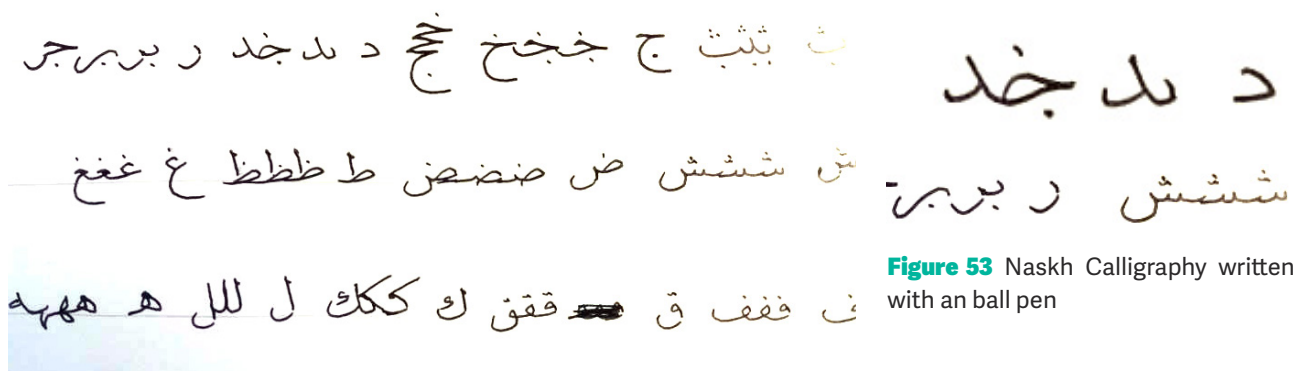 ث ثثث ج خخخ خجج د ىد خد ر بر بر جر
ش ششش ض ضضض ط ظظظ غ غغغ
ف ففف ق ققق ك ككك ل للل ه ههه
د ىد خد
ششش ر بر بر
Figure 53 Naskh Calligraphy written
with an ball pen